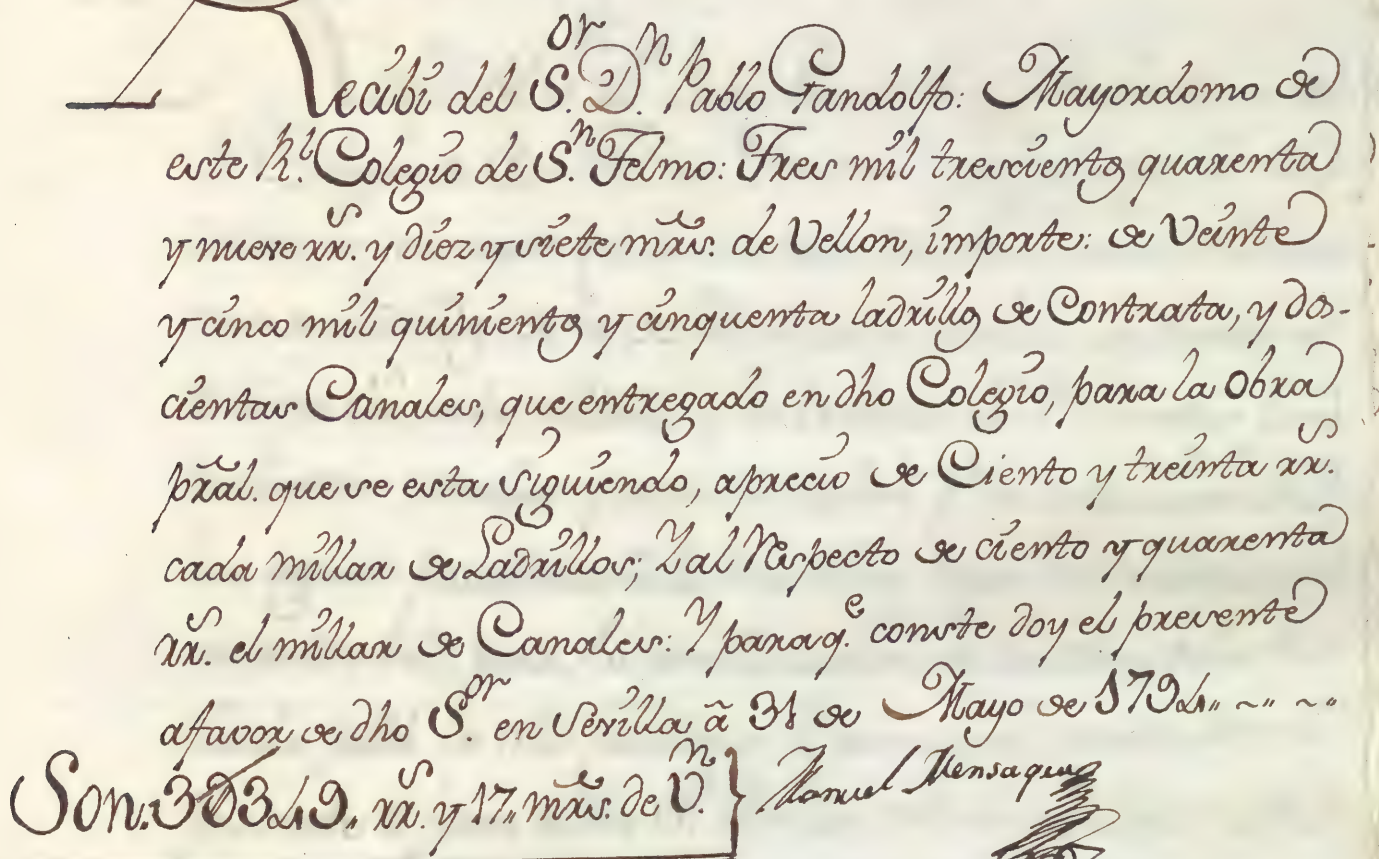 Recibi del S.or D.n Pablo Gandolfo: Mayordomo de
este R.l Colegio de S.n Telmo: Tres mil trescientos quarenta
y nueve rr.s y diez y siete mrs. de Vellon, importe: de Veinte
y cinco mil quinientos y cinquenta ladrillos de Contrata, y dos-
cientas Canales, que entregado en dho Colegio, para la Obra
pral. que se esta siguiendo, aprecio de Ciento y treinta rr.s
cada millar de Ladrillos; Y al Respecto de ciento y quarenta
rr.s el millar de Canales: Y paraq.e conste doy el presente
afavor de dho S.or en Sevilla ã 31 de Mayo de 1794.. ~ .. ~ ..
Son. 3U349.. rr.s y 17.. mrs. de V.n
Manuel Mensaque